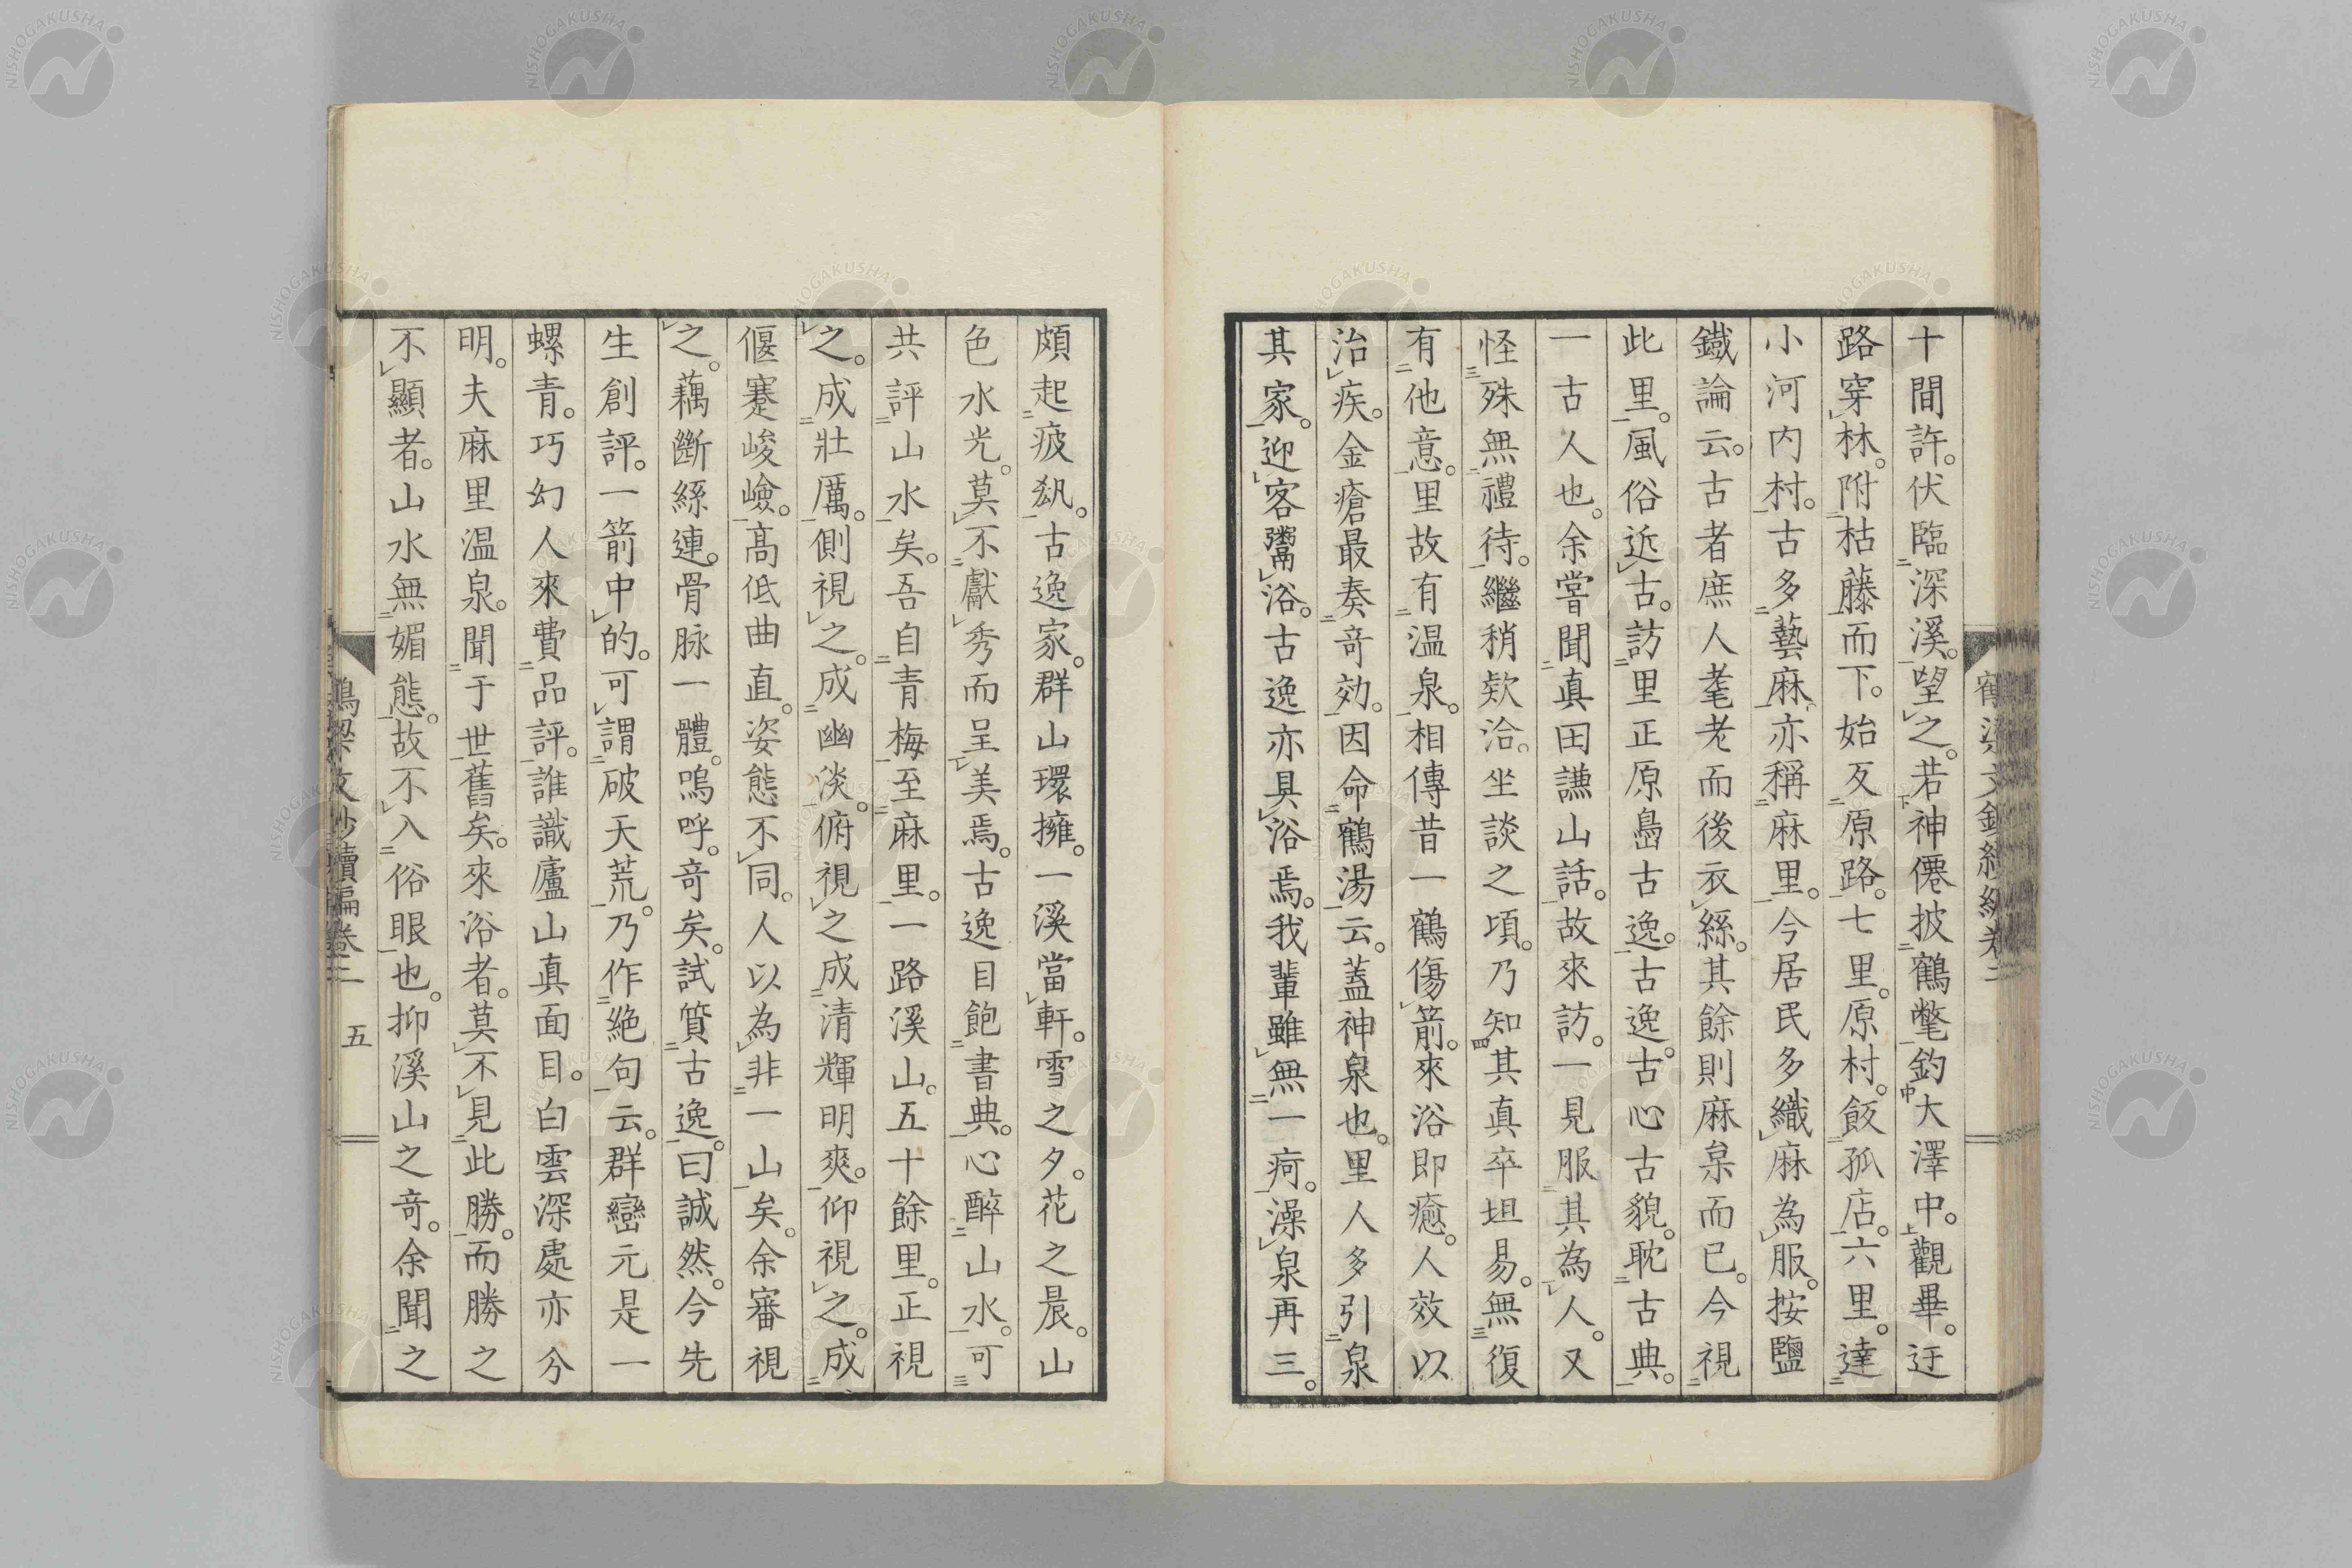 十間許。伏臨深溪。望之。若神僊披鶴氅釣大澤中。觀畢。迂
路穿林。附枯藤而下。始反原路。七里。原村。飯孤店。六里。達
小河内村。古多藝麻。亦稱麻里。今居民多織麻為服。按鹽
鐵論云。古者庶人耄老而後衣絲。其餘則麻枲而已。今視
此里。風俗近古。訪里正原島古逸。古逸。古心古貌。耽古典。
一古人也。余嘗聞真田謙山話。故來訪。一見服其為人。又
怪殊無禮待。繼稍欵洽。坐談之頃。乃知其真卒坦易。無復
有他意。里故有温泉。相傳昔一鶴傷箭。來浴即癒。人效以
治疾。金瘡最奏奇効。因命鶴湯云。蓋神泉也。里人多引泉
其家。迎客鬻浴。古逸亦具浴焉。我輩雖無一疴。澡泉再三。
頗起疲㔟。古逸家。群山環擁。一溪當軒。雪之夕。花之晨。山
色水光。莫不獻秀而呈美焉。古逸目飽書典。心醉山水。可
共評山水矣。吾自青梅至麻里。一路溪山。五十餘里。正視
之。成壯厲。側視之。成幽淡。俯視之成清輝明爽。仰視之。成
偃蹇峻嶮。高低曲直。姿態不同。人以為非一山矣。余審視
之。藕斷絲連。骨脉一體。嗚呼。奇矣。試質古逸。曰誠然。今先
生創評。一箭中的。可謂破天荒。乃作絶句云。群巒元是一
螺青。巧幻人來費品評。誰識廬山真面目。白雲深處亦分
明。夫麻里温泉。聞于世舊矣。來浴者。莫不見此勝。而勝之
不顯者。山水無媚態。故不入俗眼也。抑溪山之奇。余聞之
五